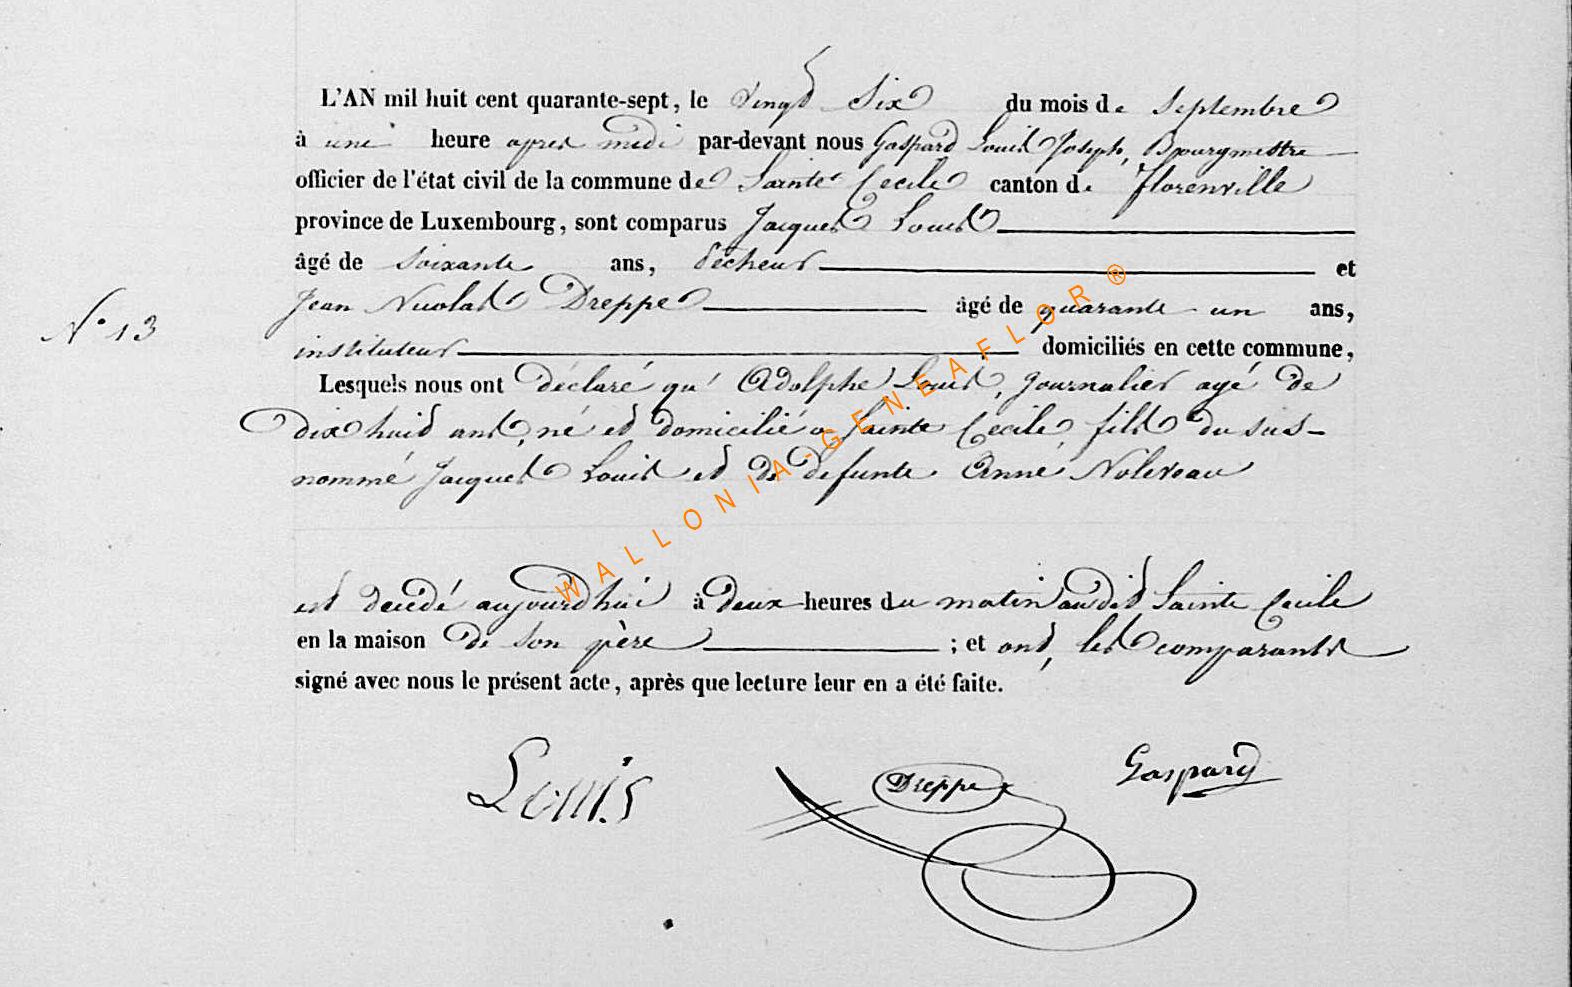 L'AN mil huit cent quarante-sept, le vingt Six du mois de Septembre
à une heure après midi par-devant nous Gaspard Louis Joseph, Bourgmettre
officier de l'état civil de la commune de Sainte Cecile canton de Florenville
province de Luxembourg, sont comparus Jacques Louis
âgé de Soixante ans, pécheur et
Jean Nicolas Dreppe âgé de quarante un ans,
N° 13
instituteur domiciliés en cette commune,
Lesquels nous ont déclaré qu' Adolphe Louis, Journalier agé de
dix huit ans, né et domicilié a Sainte Cecile, fils du sus-
nommé Jacques Louis et de defunte Anne Noleveau
est décédé aujourd'hui à deux heures du matin audit Sainte Cecile
en la maison de son père ; et ont, les comparants
signé avec nous le présent acte, après que lecture leur en a été faite.
Louis Dreppe Gaspard
WALLONIA-GENEAFLOR ®